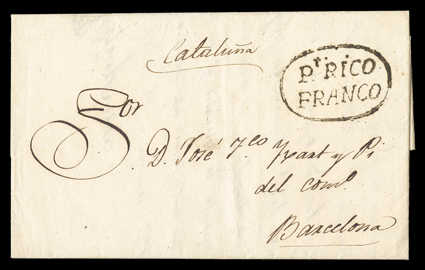 Cataluña
Pᵗ. RICO
FRANCO
Sor
D. José
y Pi
del comº.
Barcelona